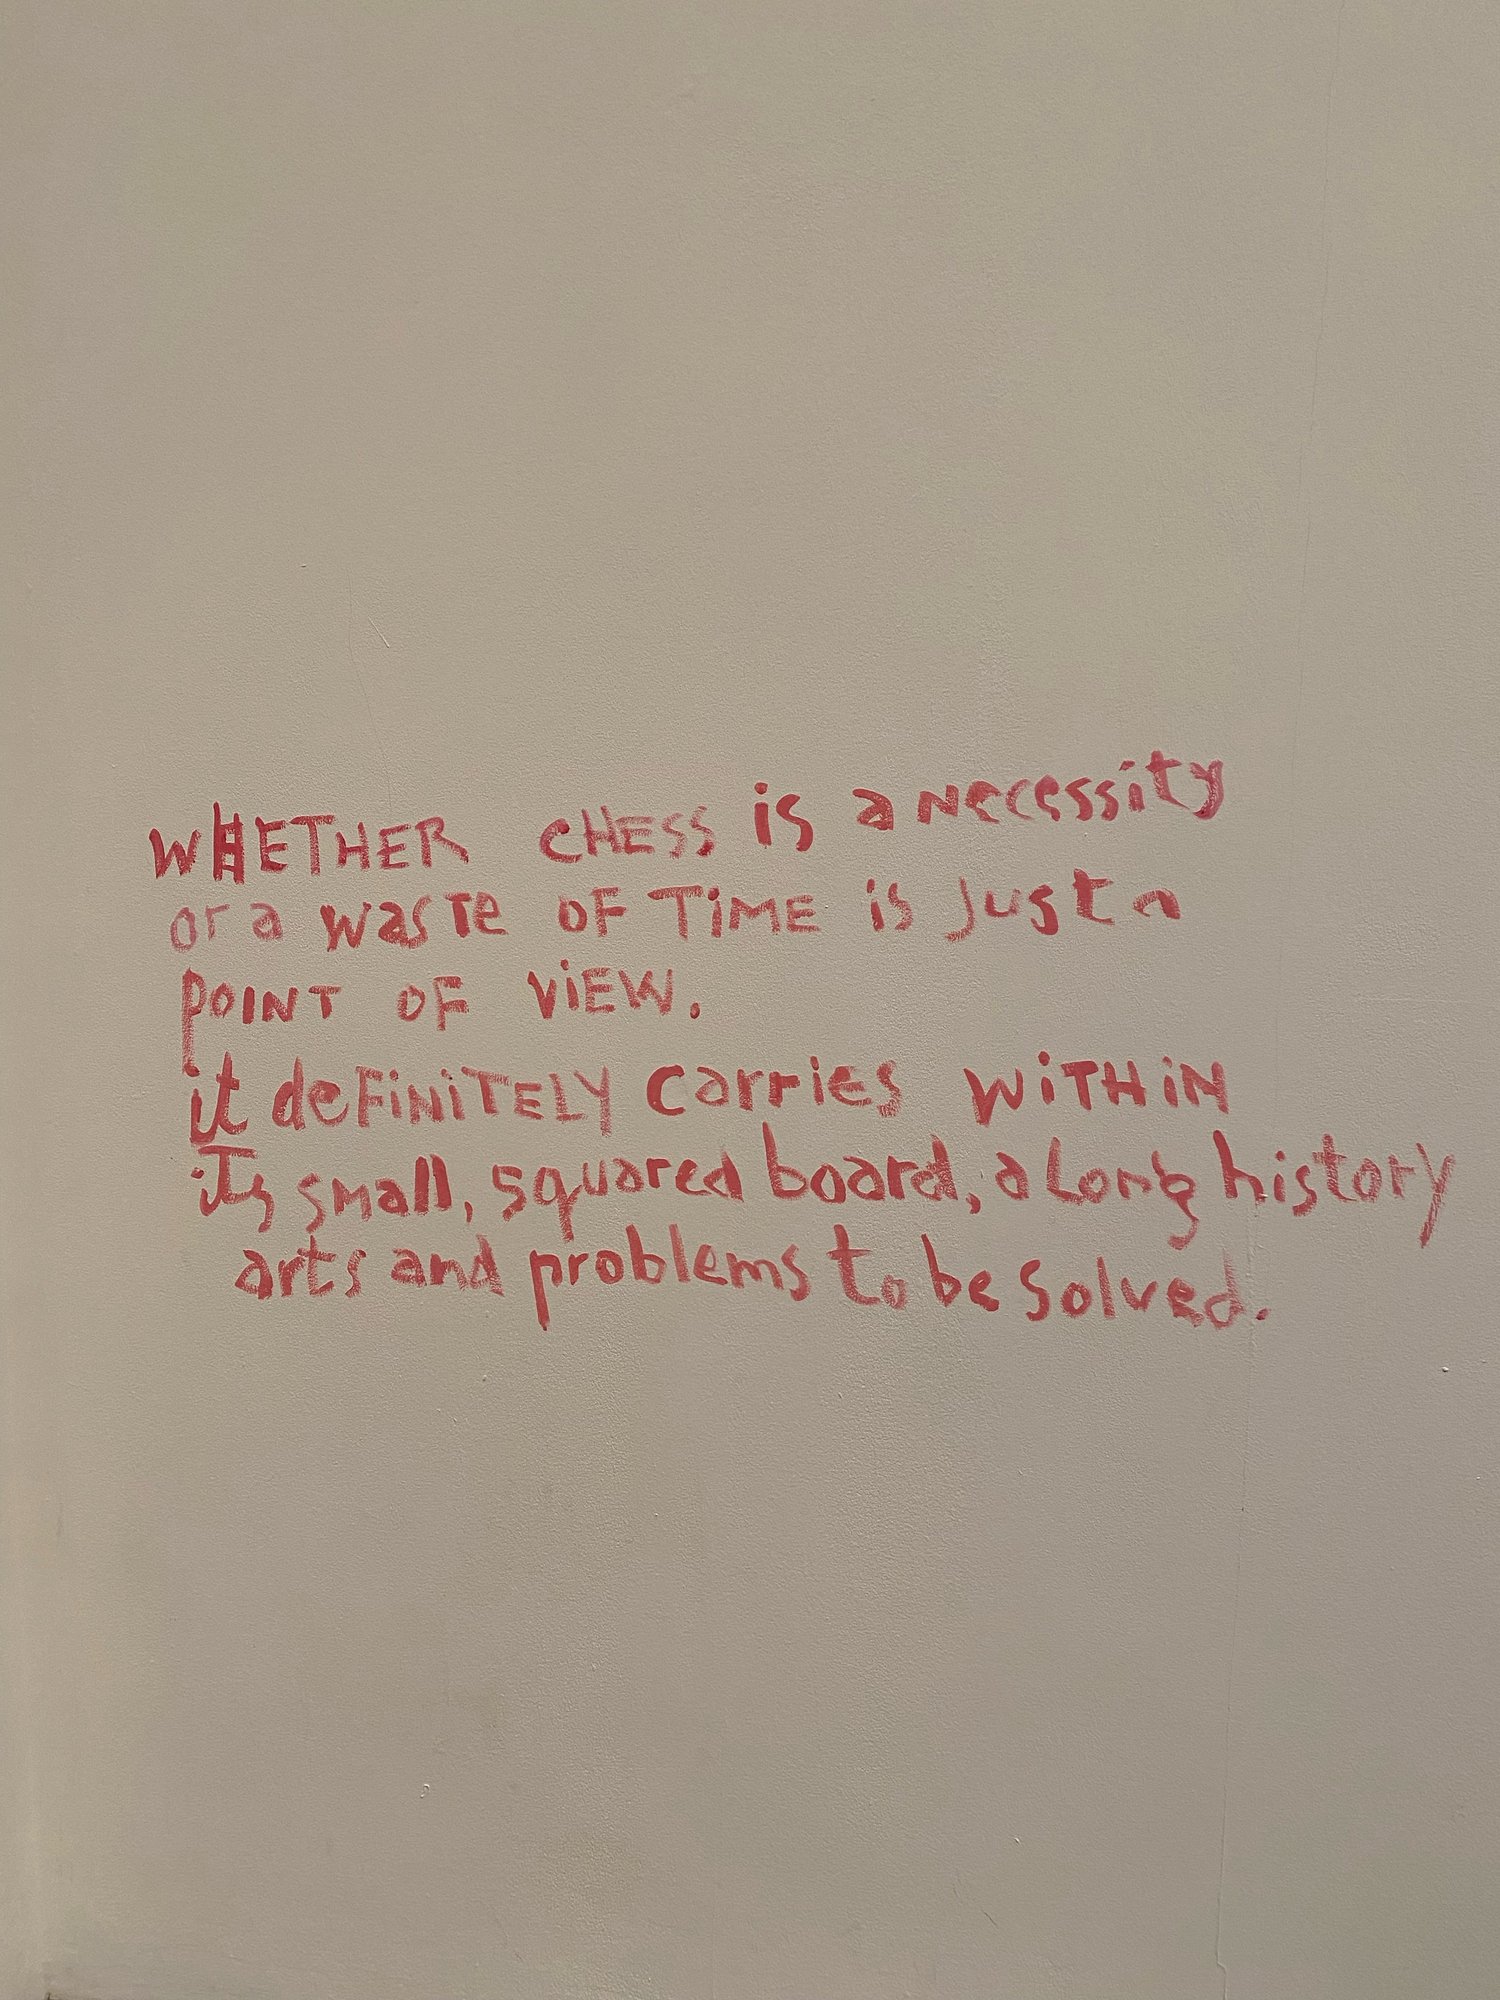 WHETHER CHESS is a necessity
or a waste OF TiME is just a
POINT OF ViEW.
it deFiNiTELY carries WiTHiN
iTs small, squared board, a long history
arts and problems to be solved.